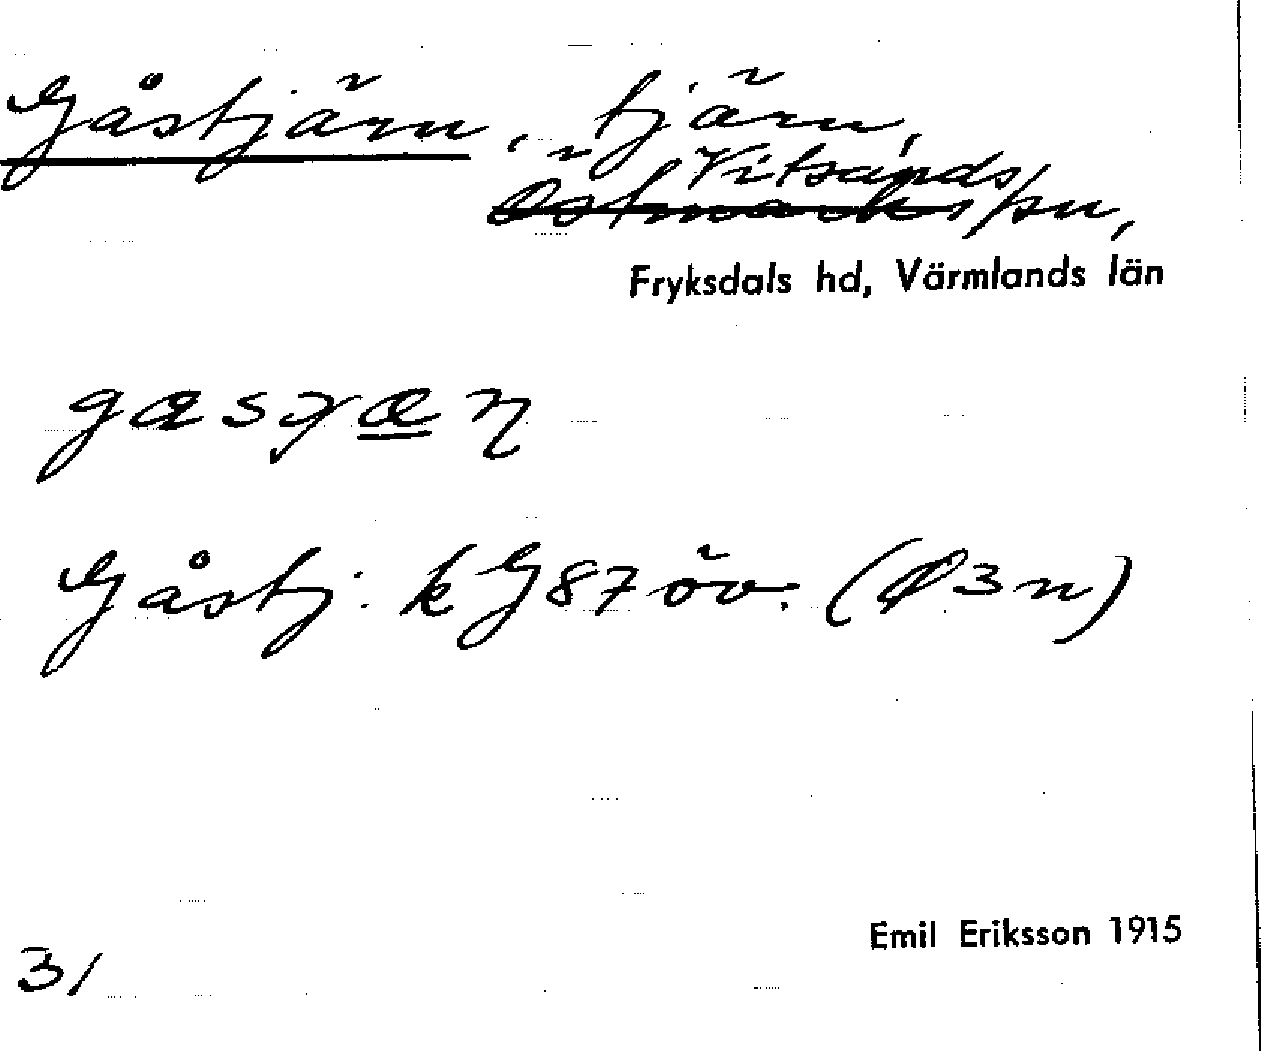 Gåstjärn, tjärn,
Vitsands
Östmarks sn,
Fryksdals hd, Värmlands län
Gåstj. k G87 öv. (Ø3n)
Emil Eriksson 1915
31